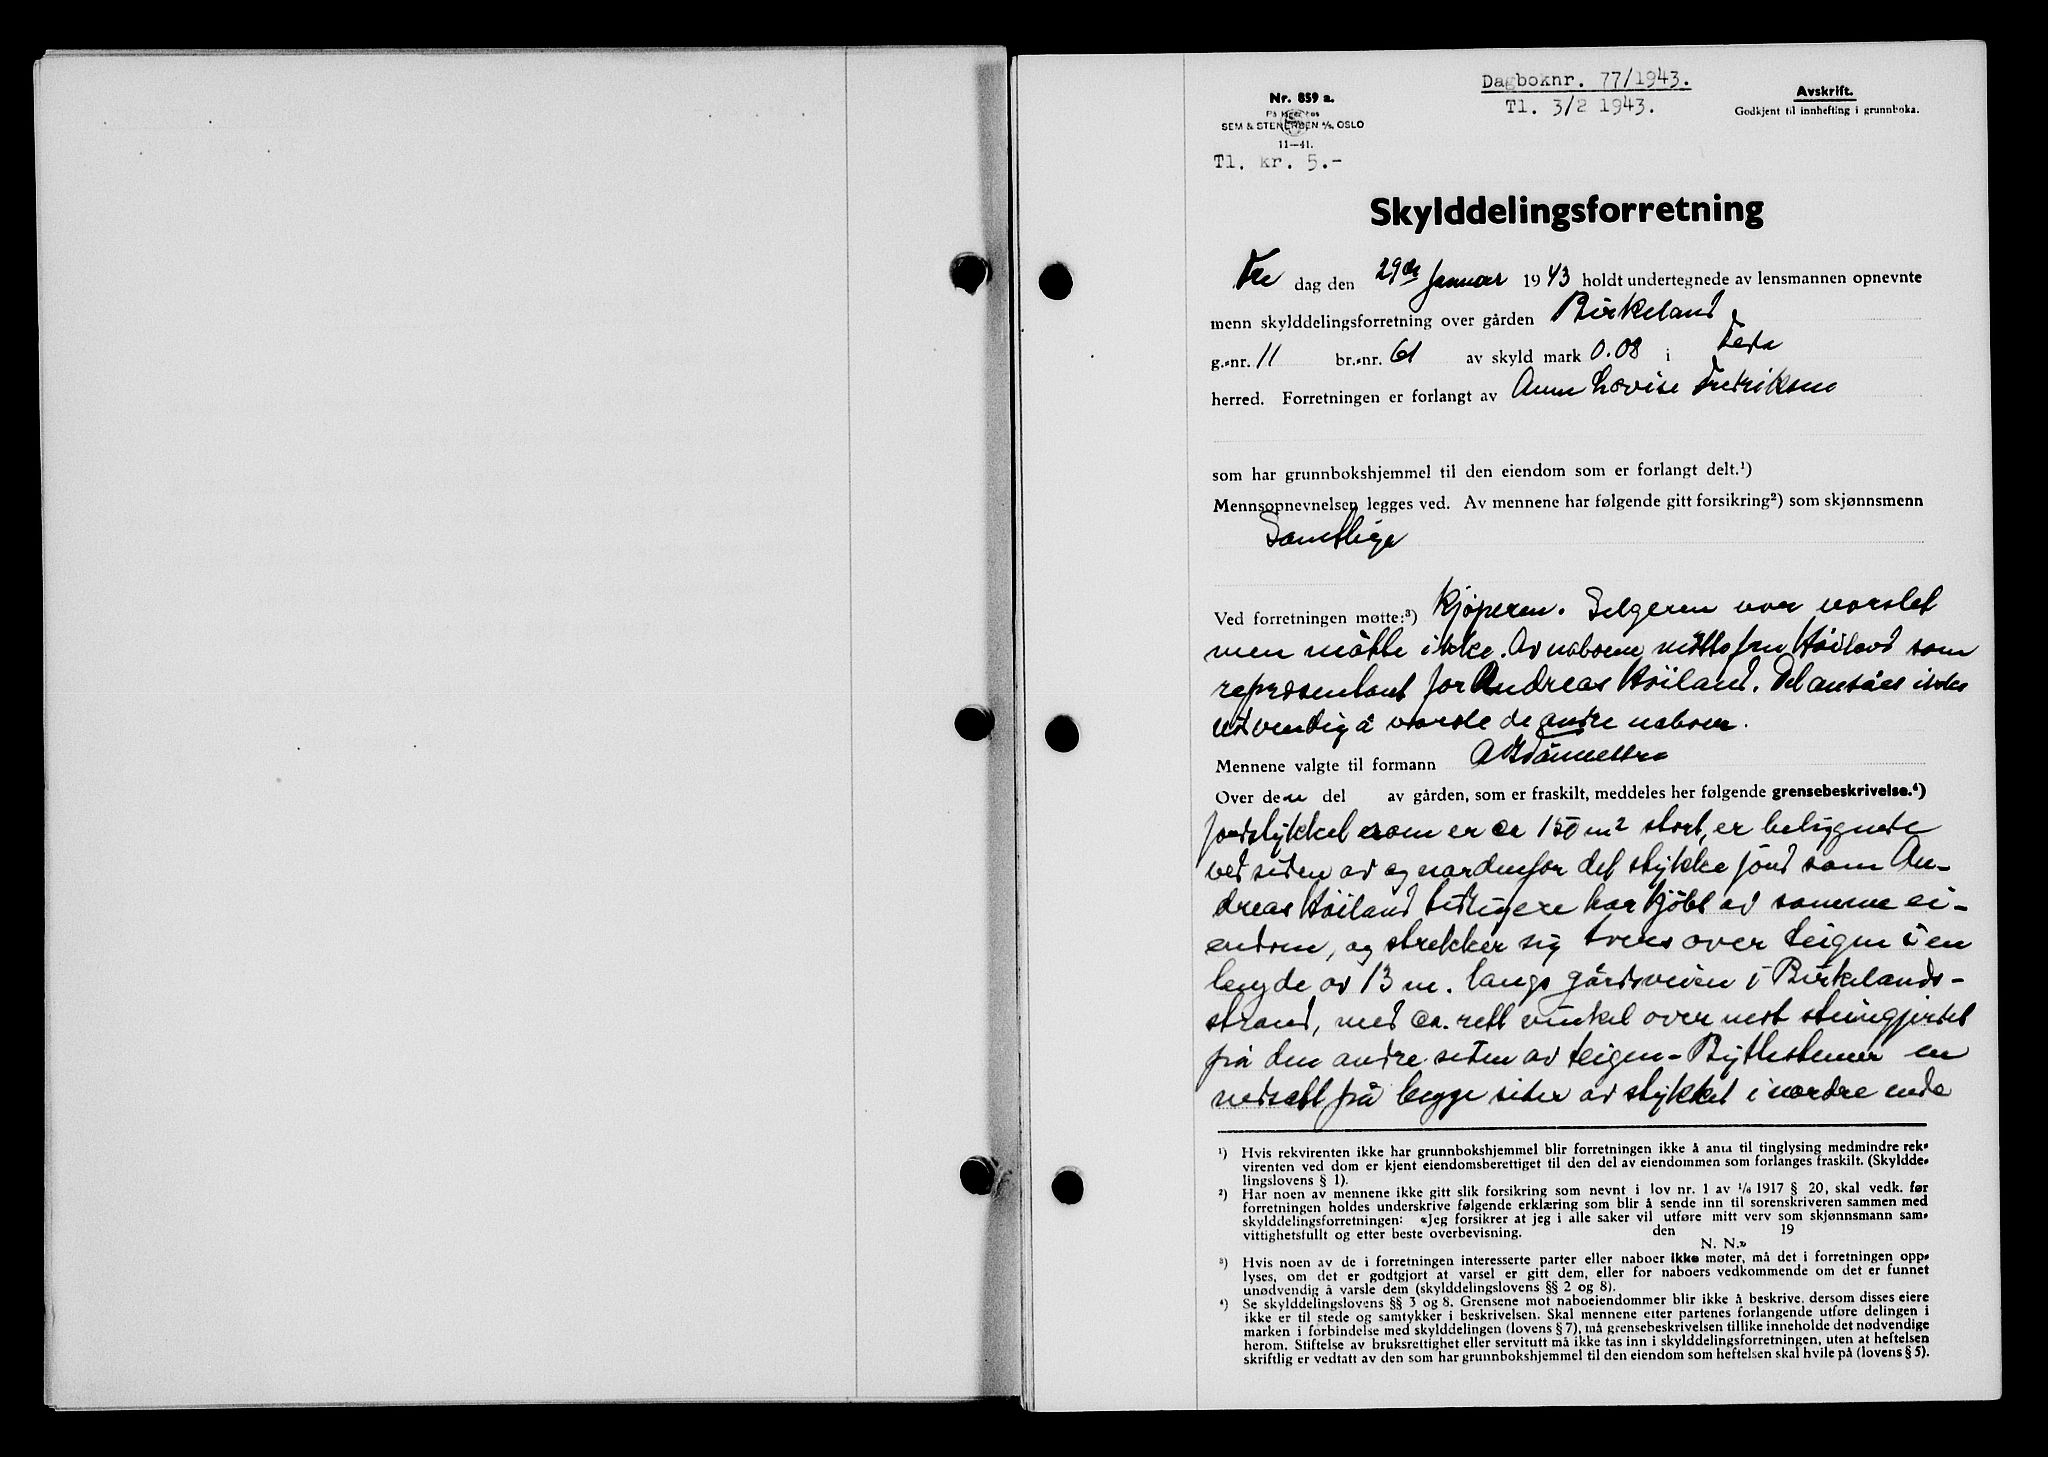 Dagboknr. 77/1943.
Tl. 3/2 1943.
Nr. 859 a.
SEM & STENERSEN A/S OSLO
11—41.
Tl. kr. 5.-
Avskrift.
Godkjent til innhefting i grunnboka.
Skylddelingsforretning
Fre dag den 29de Januar 1943 holdt undertegnede av lensmannen opnevnte
menn skylddelingsforretning over gården Birkeland
g.-nr. 11 br.-nr. 61 av skyld mark 0.08 i Feda
herred. Forretningen er forlangt av Anna Lovise Fredriksen
som har grunnbokshjemmel til den eiendom som er forlangt delt.¹)
Mennsopnevnelsen legges ved. Av mennene har følgende gitt forsikring²) som skjønnsmenn
Samtlige
Ved forretningen møtte:³) Kjøperen. Selgeren var varslet
men møtte ikke. Av naboene møtte fru Høiland som
representant for Andreas Høiland. Det ansåes ikke
nødvendig å varsle de andre naboer.
Mennene valgte til formann
Over den del av gården, som er fraskilt, meddeles her følgende grensebeskrivelse.⁴)
Jordstykket som er ca 150 m² stort, er beliggende
ved siden av og nordenfor det stykke jord som An-
dreas Høiland tidligere har kjøbt av samme ei-
endom, og strekker sig tvers over teigen i en
lengde av 13 m. langs gårdsveien i Birkelands-
strand, med ca. rett vinkel over mot steingjerdet
på den andre siden av teigen - Byttestener er
nedsatt på begge sider av stykket i nordre ende
¹) Hvis rekvirenten ikke har grunnbokshjemmel blir forretningen ikke å anta til tinglysing medmindre rek-
virenten ved dom er kjent eiendomsberettiget til den del av eiendommen som forlanges fraskilt. (Skyldde-
lingslovens § 1).
²) Har noen av mennene ikke gitt slik forsikring som nevnt i lov nr. 1 av 1/6 1917 § 20, skal vedk. før
forretningen holdes underskrive følgende erklæring som blir å sende inn til sorenskriveren sammen med
skylddelingsforretningen: «Jeg forsikrer at jeg i alle saker vil utføre mitt verv som skjønnsmann sam-
vittighetsfullt og etter beste overbevisning. den 19
N. N.»
³) Hvis noen av de i forretningen interesserte parter eller naboer ikke møter, må det i forretningen opp-
lyses, om det er godtgjort at varsel er gitt dem, eller for naboers vedkommende om det er funnet
unødvendig å varsle dem (skylddelingslovens §§ 2 og 8).
⁴) Se skylddelingslovens §§ 3 og 8. Grensene mot naboeiendommer blir ikke å beskrive, dersom disses eiere
ikke er til stede og samtykker i beskrivelsen. Skal mennene etter partenes forlangende utføre delingen i
marken i forbindelse med skylddelingen (lovens § 7), må grensebeskrivelsen tillike inneholde det nødvendige
herom. Stiftelse av bruksrettighet eller servitutt må ikke tas inn i skylddelingsforretningen, uten at heftelsen
skriftlig er vedtatt av den som har grunnbokshjemmel til den eiendom som heftelsen skal hvile på (lovens § 5).